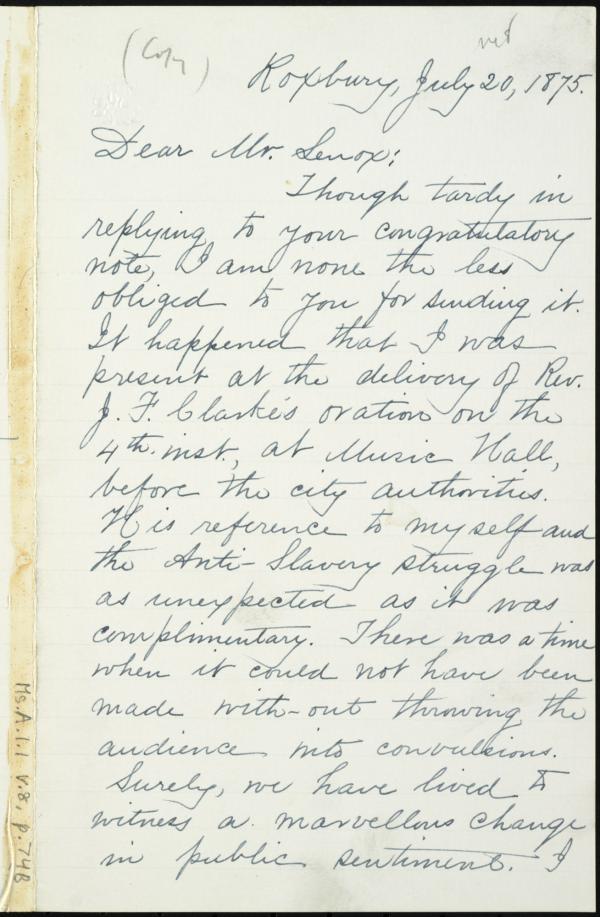 (Copy)
Roxbury, July 20, 1875.
Dear Mr. Lenox:
Though tardy in
replying to your congratulatory
note, I am none the less
obliged to you for sending it.
It happened that I was
present at the delivery of Rev.
J. F. Clarke's oration on the
4th. inst., at Music Hall,
before the city authorities.
His reference to myself and
the Anti-Slavery struggle was
as unexpected as it was
complimentary. There was a time
when it could not have been
made with-out throwing the
audience into convulsions.
Surely, we have lived to
witness a marvellous change
in public sentiment. I
Ms.A.1.1 v.8, p.74B